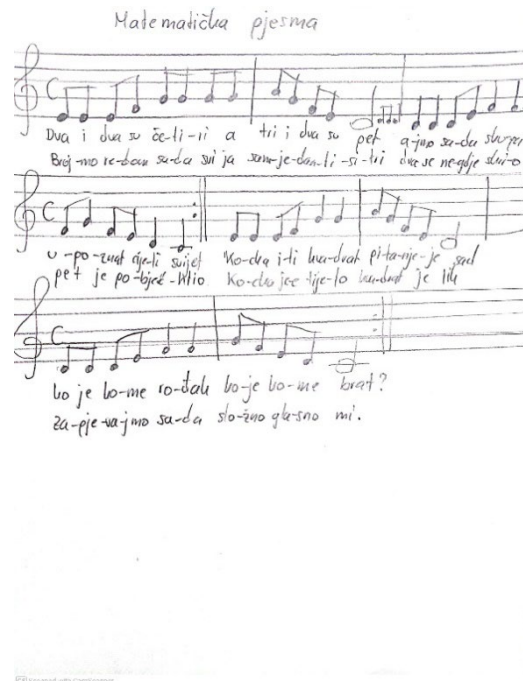 Matematička pjesma
Dva i dva su če-ti-ri a tri i dva su pet a-jmo sa-da sku-pa
Broj-mo re-dom sa-da svi ja sam je-dan-ti-si-tri dva se negdje skri-o
u-po-znat cije-li svijet Ko-cka i-li kva-drat pi-ta-nje je sad
pet je po-bjeg-klio Ko-cka je tije-lo kva-drat je lik
ko je ko-me ro-đak ko-je ko-me brat?
Za-pje-va-jmo sa-da slo-žno gla-sno mi.